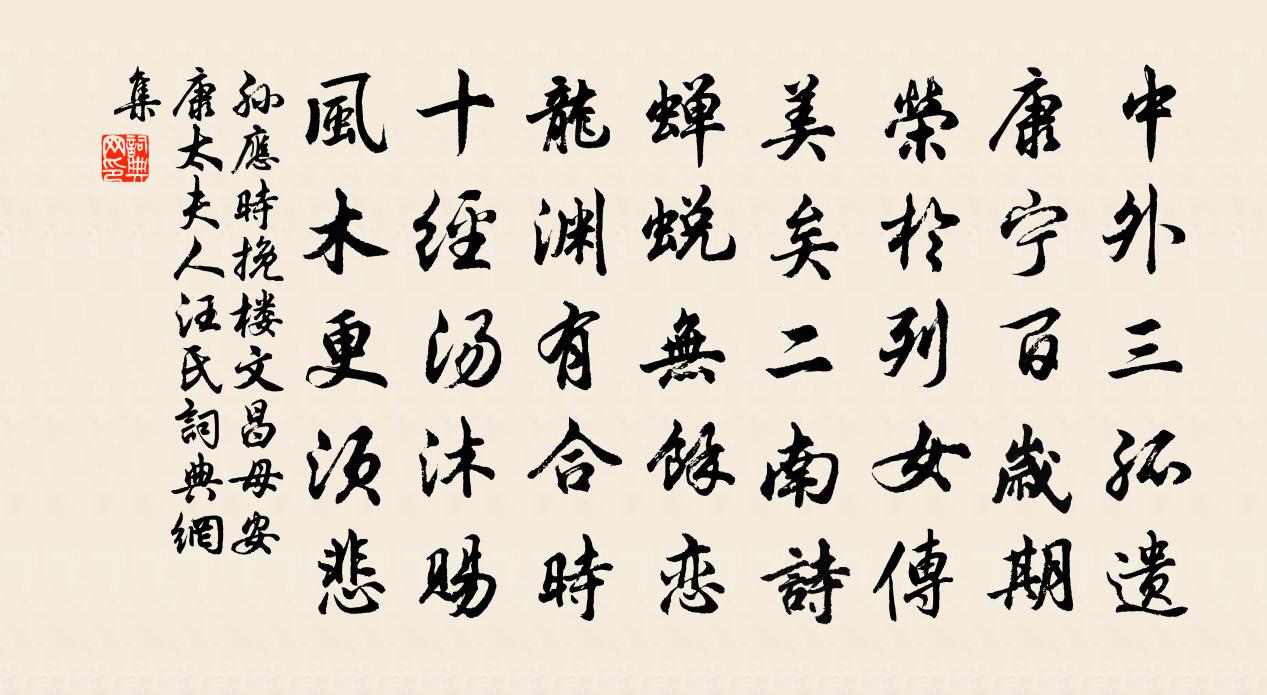 中外三孤遗
康宁百歲期
榮於列女傳
美矣二南詩
蝉蜕無餘恋
龍渊有合時
十經汤沐賜
風木更須悲
孙應時挽楼文昌母安
康太夫人汪氏詞典網
集
詞典网印